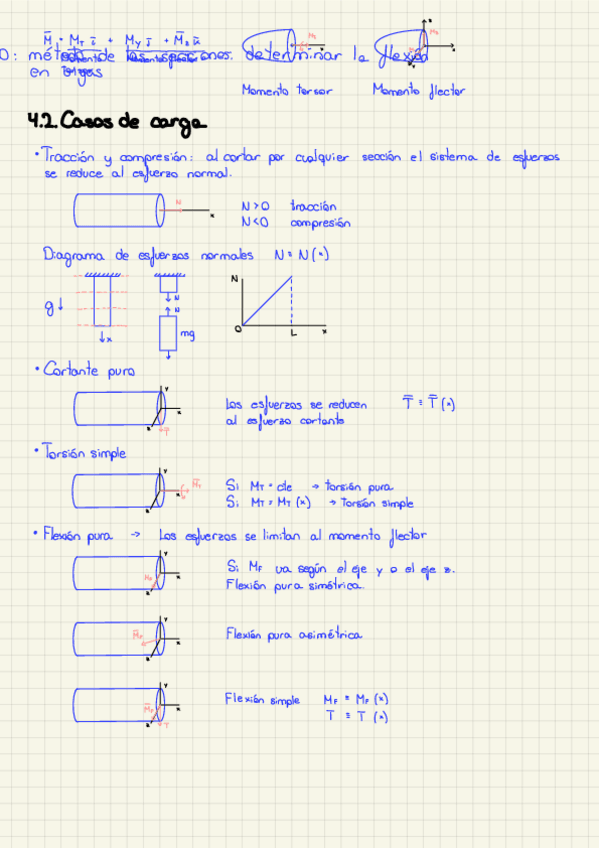 M̄ = M_T ī + M_y j̄ + M_z k̄
D: método de las secciones. determinar la flexión
en vigas
Momento torsor
Momento flector
4.2. Casos de carga
• Tracción y compresión: al cortar por cualquier sección el sistema de esfuerzos
se reduce al esfuerzo normal.
N
x
N > 0 tracción
N < 0 compresión
Diagrama de esfuerzos normales N ≡ N(x)
g ↓
↓ x
N
N
mg
N
O
L
x
• Cortante puro
y
x
z
T̄
Los esfuerzos se reducen
al esfuerzo cortante
T̄ ≡ T̄(x)
• Torsión simple
y
x
z
M̄_T
Si M_T = cte → torsión pura
Si M_T = M_T(x) → Torsión simple
• Flexión pura → Los esfuerzos se limitan al momento flector
y
x
z
M_F
Si M_F va según el eje y o el eje z.
Flexión pura simétrica.
y
x
z
M̄_F
Flexión pura asimétrica
y
x
z
M̄_F
T
Flexión simple M_F ≡ M_F(x)
T ≡ T(x)